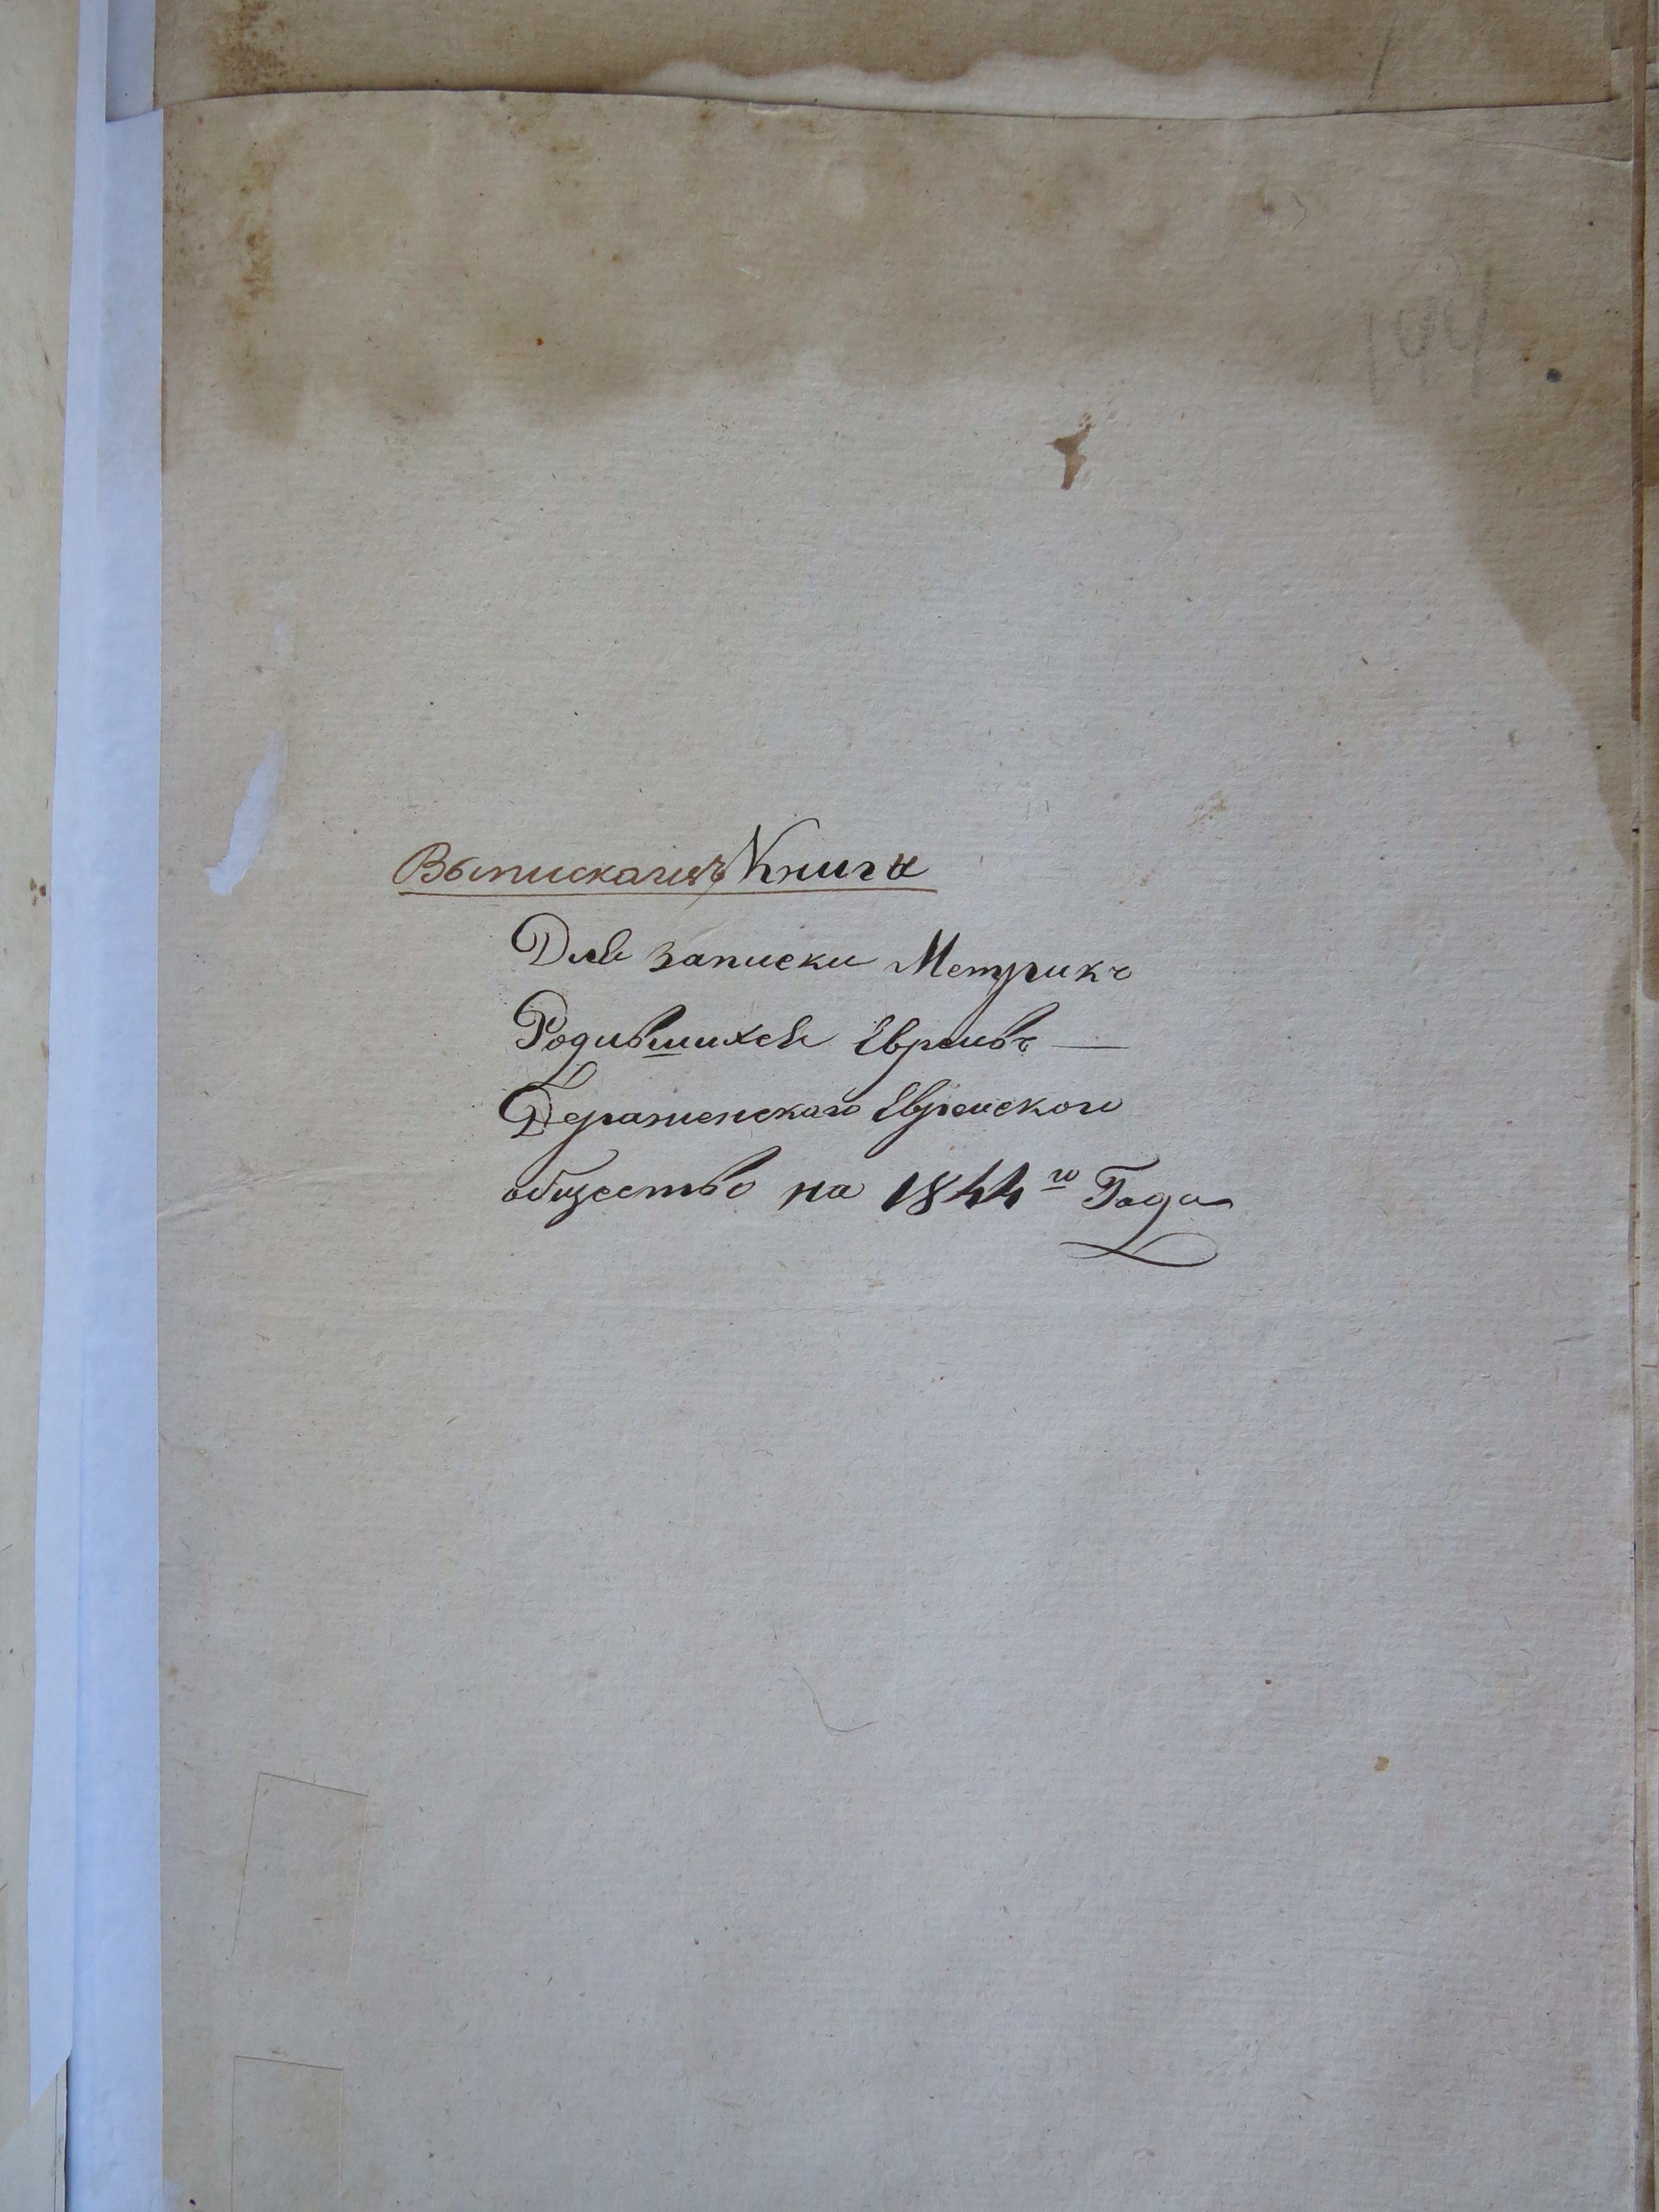 Выписка изъ Книга
Для записки Метрикъ
Родившихся Евреивъ —
Деражненскаго Еврейского
общество на 1844го Года